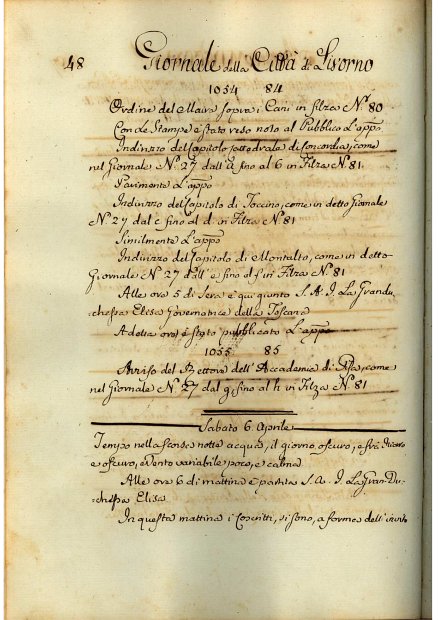 48 Giornale della Città di Livorno
1054 84
Ordine del Maire sopra i Cani in filza N.° 80
Con le Stampe è stato reso noto al Pubblico L'appo
Indirizzo del Capitolo cattedrale di Concordia, come
nel Giornale N.° 27 dall'a fino al b in Filza N.° 81
Parimente L'appo
Indirizzo del Capitolo di Toccino, come in detto Giornale
N.° 27 dal c fino al d in Filza N.° 81
Similmente L'appo
Indirizzo del Capitolo di Montalto, come in detto
Giornale N.° 27 dall'e fino al f in Filza N.° 81
Alle ore 5 di Sera è qui giunto S. A. I. La Grandu-
chessa Elisa Governatrice della Toscana
A detta ora è stato pubblicato L'appo
1055 85
Avviso del Rettore dell'Accademia di Pisa, come
nel Giornale N.° 27 dal g fino al h in Filza N.° 81
Sabato 6. Aprile
Tempo nella scorsa notte acqua, il giorno, oscuro, e
e oscuro, e Vento variabile poco, e calma
Alle ore 6 di mattina è partita S. A. I. La Gran Du-
chessa Elisa
In questa mattina i Coscritti, si sono, a forma dell'